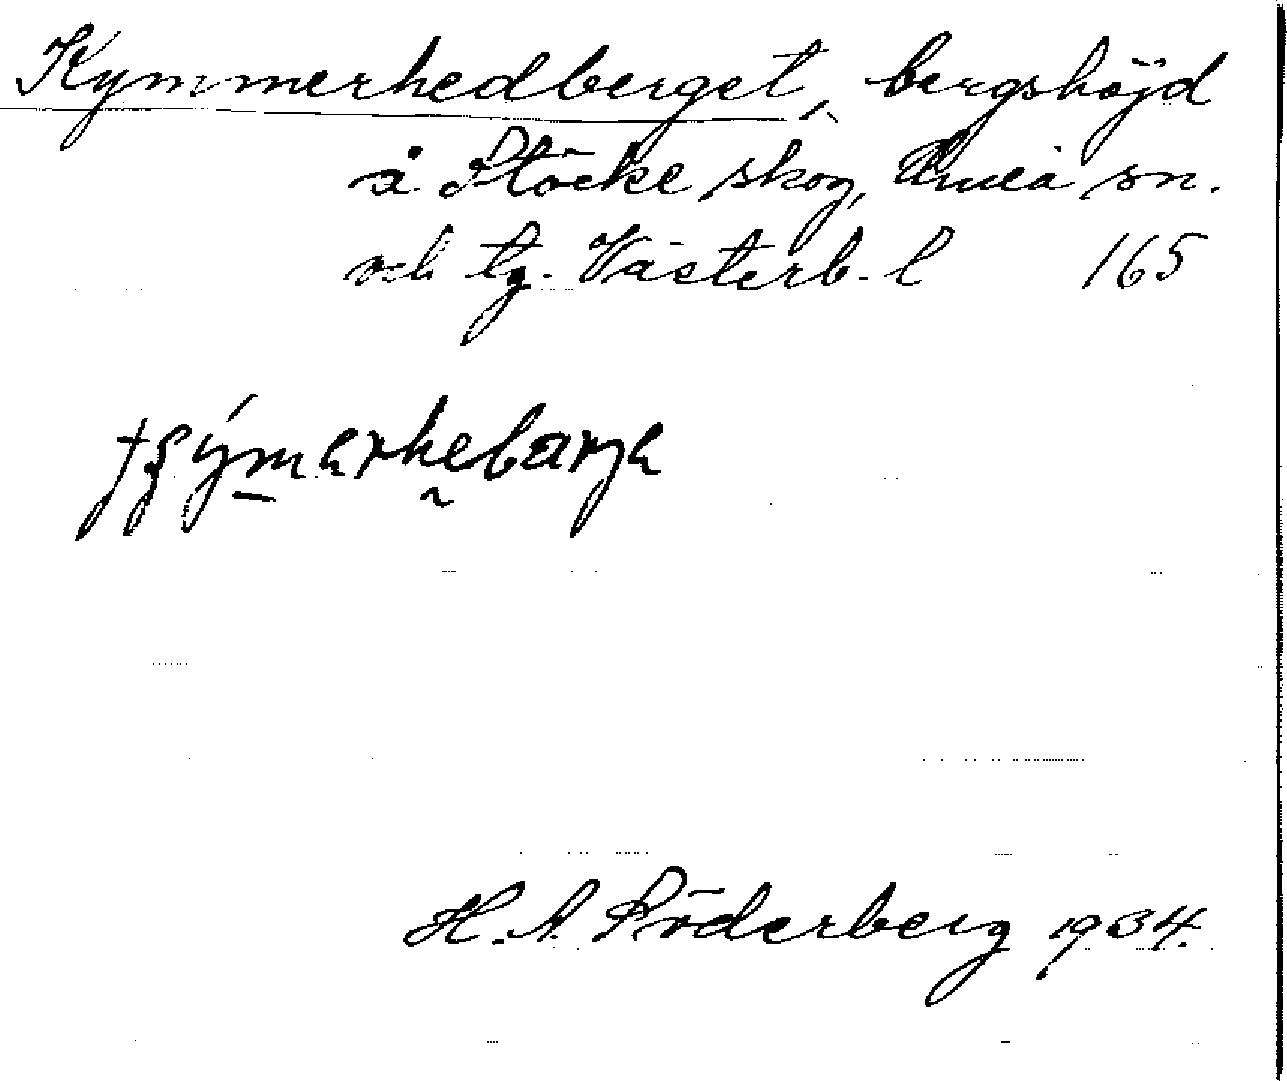 Kymmerhedberget, bergshöjd
å Stöcke skog, Umeå sn.
och tg. Västerb. l 165
H. A. Söderberg 1934.